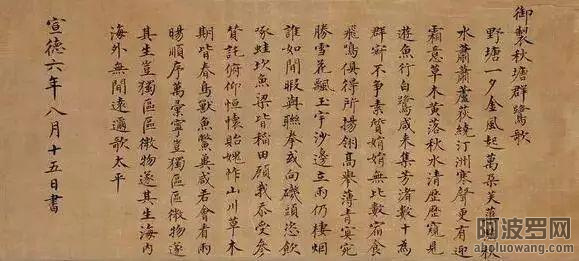 御製秋塘群鷺歌
野塘一夕金風起萬朶芙蓉秋
水蕭蕭蘆荻繞汀洲寒聲更有迎
霜意草木黃落秋水清歷歷寬見
遊魚行白鷺咸來集芳渚數十為
群寂不爭素質娟娟無比數宿食
飛鳴俱得所揚翎高舉薄青冥宛
勝雪花飄玉宇沙邊立雨仍棲烟
誰如閒暇與聯拳或向磯頭恣飲
啄蛙坎魚梁皆稻田顧我忝受參
贊託俯仰恒懷貽媿怍山川草木
期皆春鳥獸魚鱉奠咸若會看雨
暘順序萬彙寧豈獨區區微物遂
其生豈獨區區微物遂其生海內
海外無聞遠邇歌太平
宣德六年八月十五日書
阿波罗网
aboluowang.com